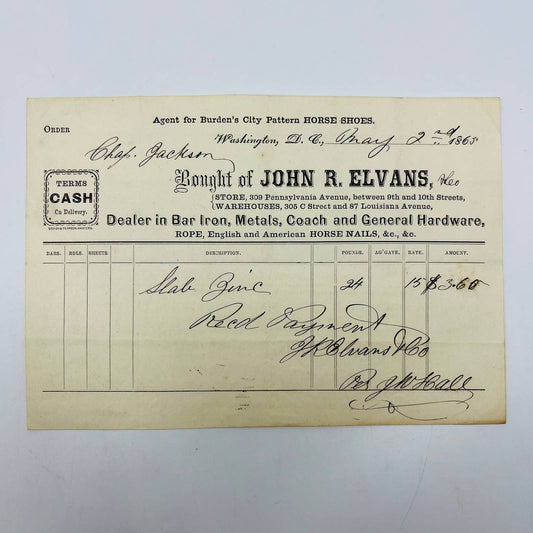 Agent for Burden's City Pattern HORSE SHOES.
ORDER
Washington, D. C., May 2nd 1865
Chas. Jackson
TERMS
CASH
On Delivery.
Bought of JOHN R. ELVANS, & Co
STORE, 309 Pennsylvania Avenue, between 9th and 10th Streets,
WAREHOUSES, 305 C Street and 87 Louisiana Avenue,
Dealer in Bar Iron, Metals, Coach and General Hardware,
ROPE, English and American HORSE NAILS, &c., &c.
BARS. BDLS. SHEETS. DESCRIPTION. POUNDS. AG'GATE. RATE. AMOUNT.
Slab Zinc 24 15 $3.60
Recd Payment
J R Elvans & Co
Per J W Hall